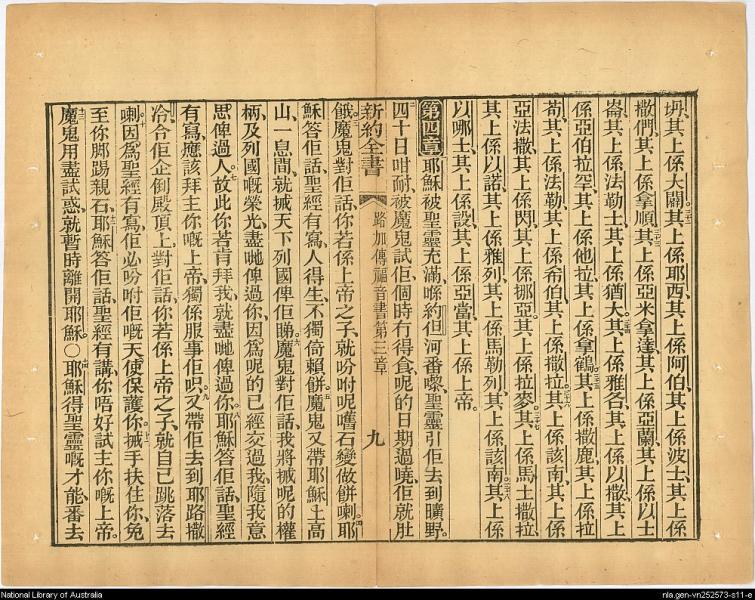 坍、其上係大闢、其上係耶西、其上係阿伯、其上係波士、其上係
撒們、其上係拿順、其上係亞米拿達、其上係亞蘭、其上係以士
崙、其上係法勒士、其上係猶大、其上係雅各、其上係以撒、其上
係亞伯拉罕、其上係他拉、其上係拿鶴、其上係撒鹿、其上係拉
苟、其上係法勒、其上係希伯、其上係撒拉、其上係該南、其上係
亞法撒、其上係閃、其上係挪亞、其上係拉麥、其上係馬土撒拉、
其上係以諾、其上係雅列、其上係馬勒列、其上係該南、其上係
以哪士、其上係設、其上係亞當、其上係上帝。
第四章 耶穌被聖靈充滿、喺約但河番嚟、聖靈引佢去到曠野。
四十日咁耐、被魔鬼試佢、個時冇得食、呢的日期過曉、佢就肚
新約全書 路加傳福音書第三章 九
餓。魔鬼對佢話、你若係上帝之子、就吩咐呢嚿石變做餅喇。耶
穌答佢話、聖經有寫、人得生、不獨倚賴餅。魔鬼又帶耶穌上高
山、一息間、就搣天下列國俾佢睇。魔鬼對佢話、我將搣呢的權
柄、及列國嘅榮光、盡哋俾過你、因爲呢的已經交過我、隨我意
思俾過人。故此你若肯拜我、就盡哋俾過你。耶穌答佢話、聖經
有寫、應該拜主你嘅上帝、獨係服事佢呮。又帶佢去到耶路撒
冷、合佢企倒殿頂上、對佢話、你若係上帝之子、就自己跳落去
喇。因爲聖經有寫、佢必吩咐佢嘅天使保護你、搣手扶住你、免
至你脚踢親石。耶穌答佢話、聖經有講、你唔好試主你嘅上帝。
魔鬼用盡試惑、就暫時離開耶穌。〇耶穌得聖靈嘅才能、番去
National Library of Australia
nla.gen-vn252573-s11-e